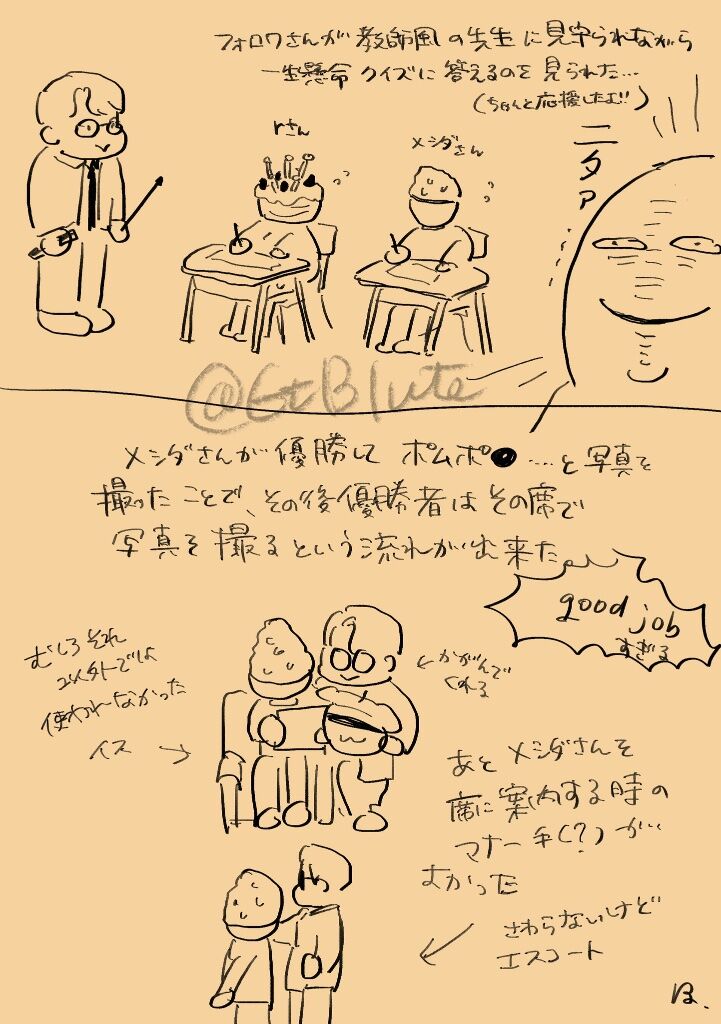 フォロワさんが教師風の先生に見守られながら
一生懸命クイズに答えるのを見られた…
(ちゃんと応援したよ!!)
rさん
メシダさん
ニタァ
@GtBlute
メシダさんが優勝してポムポ●…と写真を
撮ったことで、その後優勝者はその席で
写真を撮るという流れが出来た
good job
すぎる
むしろそれ
以外では
使われなかった
イス
かがんで
くれる
あとメシダさんを
席に案内する時の
マナー手(?)が…
よかった
さわらないけど
エスコート